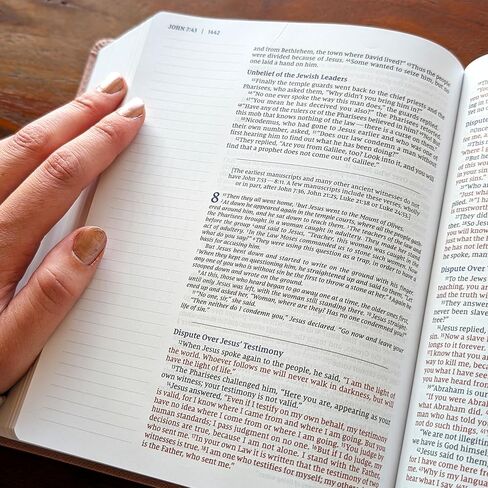 JOHN 7:43 |
and from Bethlehem, the town where David lived?" ⁴³Thus the people
were divided because of Jesus. ⁴⁴Some wanted to seize him, but no
one laid a hand on him.
Unbelief of the Jewish Leaders
⁴⁵Finally the temple guards went back to the chief priests and the
Pharisees, who asked them, "Why didn't you bring him in?"
⁴⁶"No one ever spoke the way this man does," the guards replied.
⁴⁷"You mean he has deceived you also?" the Pharisees retorted.
⁴⁸"Have any of the rulers or of the Pharisees believed in him? ⁴⁹No! But
this mob that knows nothing of the law — there is a curse on them."
⁵⁰Nicodemus, who had gone to Jesus earlier and who was one of
their own number, asked, ⁵¹"Does our law condemn a man without
first hearing him to find out what he has been doing?"
⁵²They replied, "Are you from Galilee, too? Look into it, and you will
find that a prophet does not come out of Galilee."
[The earliest manuscripts and many other ancient witnesses do not
have John 7:53—8:11. A few manuscripts include these verses, wholly
or in part, after John 7:36, John 21:25, Luke 21:38 or Luke 24:53.]
⁵³Then they all went home,
8 ¹but Jesus went to the Mount of Olives.
²At dawn he appeared again in the temple courts, where all the people
gathered around him, and he sat down to teach them. ³The teachers of the law and
the Pharisees brought in a woman caught in adultery. They made her stand
before the group ⁴and said to Jesus, "Teacher, this woman was caught in the
act of adultery. ⁵In the Law Moses commanded us to stone such women. Now
what do you say?" ⁶They were using this question as a trap, in order to have a
basis for accusing him.
But Jesus bent down and started to write on the ground with his finger.
⁷When they kept on questioning him, he straightened up and said to them, "Let
any one of you who is without sin be the first to throw a stone at her." ⁸Again he
stooped down and wrote on the ground.
⁹At this, those who heard began to go away one at a time, the older ones first,
until only Jesus was left, with the woman still standing there. ¹⁰Jesus straightened
up and asked her, "Woman, where are they? Has no one condemned you?"
¹¹"No one, sir," she said.
"Then neither do I condemn you," Jesus declared. "Go now and leave your
life of sin."
Dispute Over Jesus' Testimony
¹²When Jesus spoke again to the people, he said, "I am the light of
the world. Whoever follows me will never walk in darkness, but will
have the light of life."
¹³The Pharisees challenged him, "Here you are, appearing as your
own witness; your testimony is not valid."
¹⁴Jesus answered, "Even if I testify on my own behalf, my testimony
is valid, for I know where I came from and where I am going. But you
have no idea where I come from or where I am going. ¹⁵You judge by
human standards; I pass judgment on no one. ¹⁶But if I do judge, my
decisions are true, because I am not alone. I stand with the Father,
who sent me. ¹⁷In your own Law it is written that the testimony of two
witnesses is true. ¹⁸I am one who testifies for myself; my other witness
is the Father, who sent me."
Dispute Over
To the Jews
teaching, you are
and the truth will
They answered
never been slaves
free?"
Jesus replied,
sin. Now a slave
longs to it forever.
I know that you are
way to kill me, because
you what I have seen
you have heard from
"Abraham is our
"If you were Abraham's
what Abraham did,
man who has told you
not do such things.
"We are not illegitimate
Jesus said to them,
for I have come here from
me. Why is my language
hear what I say.